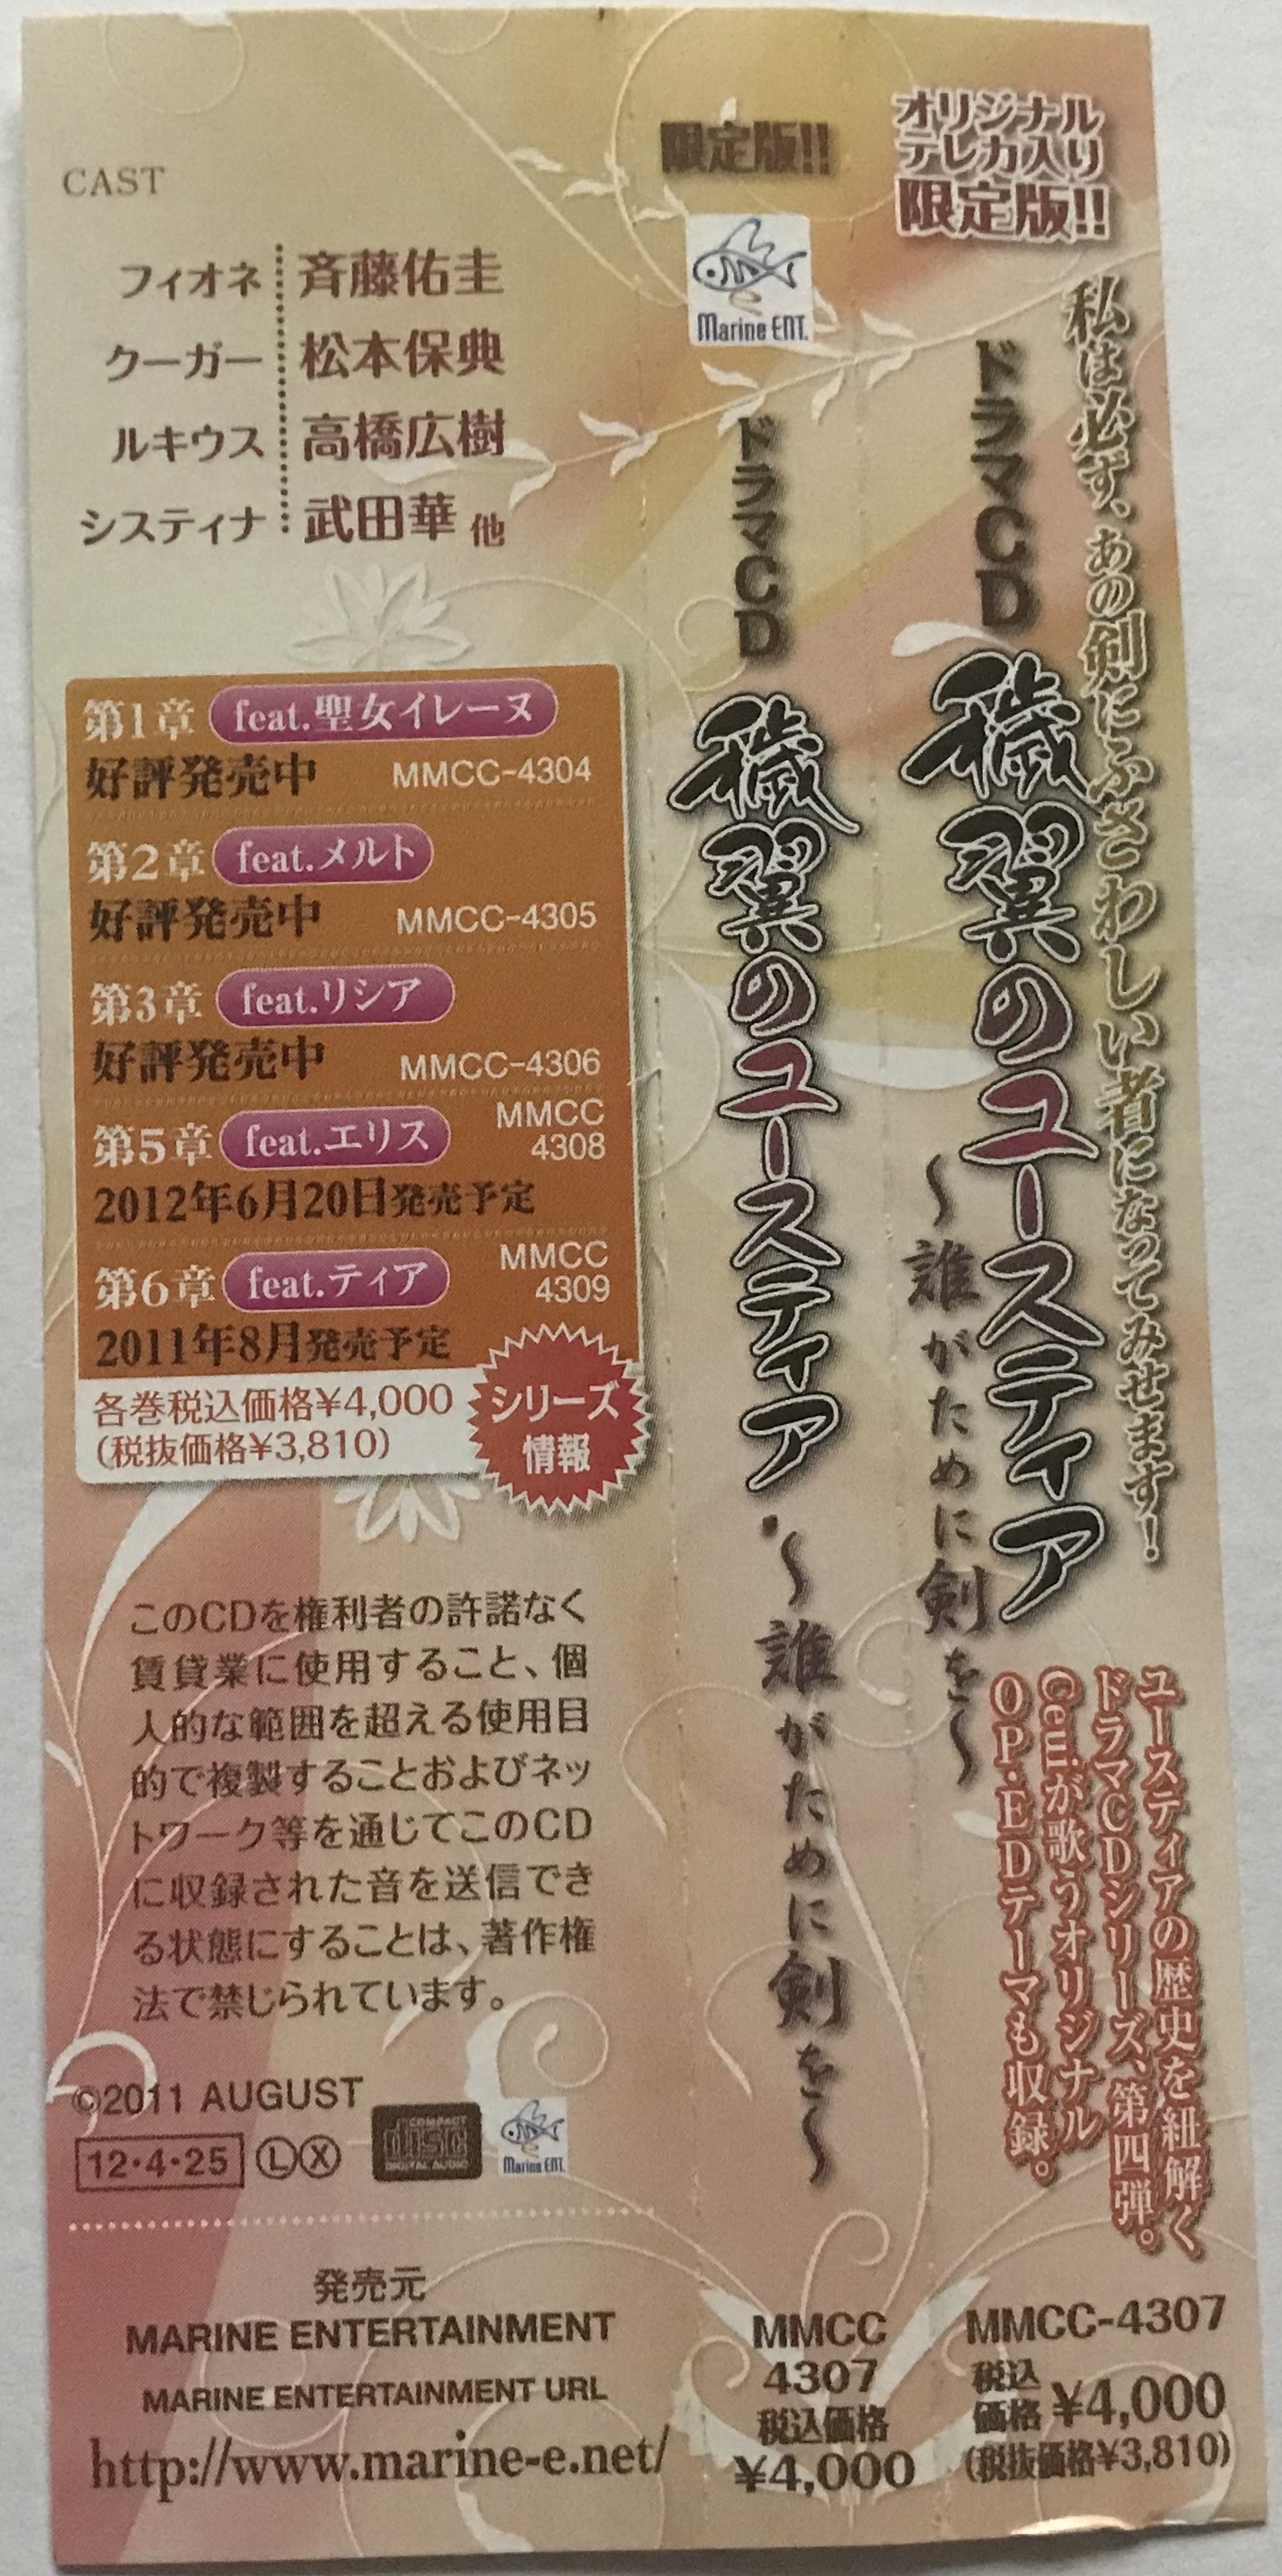 CAST
フィオネ 斉藤佑圭
クーガー 松本保典
ルキウス 高橋広樹
システィナ 武田華 他
第1章 feat.聖女イレーヌ
好評発売中 MMCC-4304
第2章 feat.メルト
好評発売中 MMCC-4305
第3章 feat.リシア
好評発売中 MMCC-4306
第5章 feat.エリス MMCC
4308
2012年6月20日発売予定
第6章 feat.ティア MMCC
4309
2011年8月発売予定
各巻税込価格¥4,000
(税抜価格¥3,810)
シリーズ
情報
このCDを権利者の許諾なく
賃貸業に使用すること、個
人的な範囲を超える使用目
的で複製することおよびネッ
トワーク等を通じてこのCD
に収録された音を送信でき
る状態にすることは、著作権
法で禁じられています。
©2011 AUGUST
12・4・25 Ⓛⓧ
COMPACT
disc
DIGITAL AUDIO
Marine ENT.
発売元
MARINE ENTERTAINMENT
MARINE ENTERTAINMENT URL
http://www.marine-e.net/
限定版!!
Marine ENT.
ドラマCD
穢翼のユースティア
～誰がために剣を～
MMCC
4307
税込価格
¥4,000
オリジナル
テレカ入り
限定版!!
私は必ず、あの剣にふさわしい者になってみせます!
ドラマCD
穢翼のユースティア
～誰がために剣を～
ユースティアの歴史を紐解く
ドラマCDシリーズ、第四弾。
Ceuiが歌うオリジナル
OP・EDテーマも収録。
MMCC-4307
税込
価格 ¥4,000
(税抜価格¥3,810)